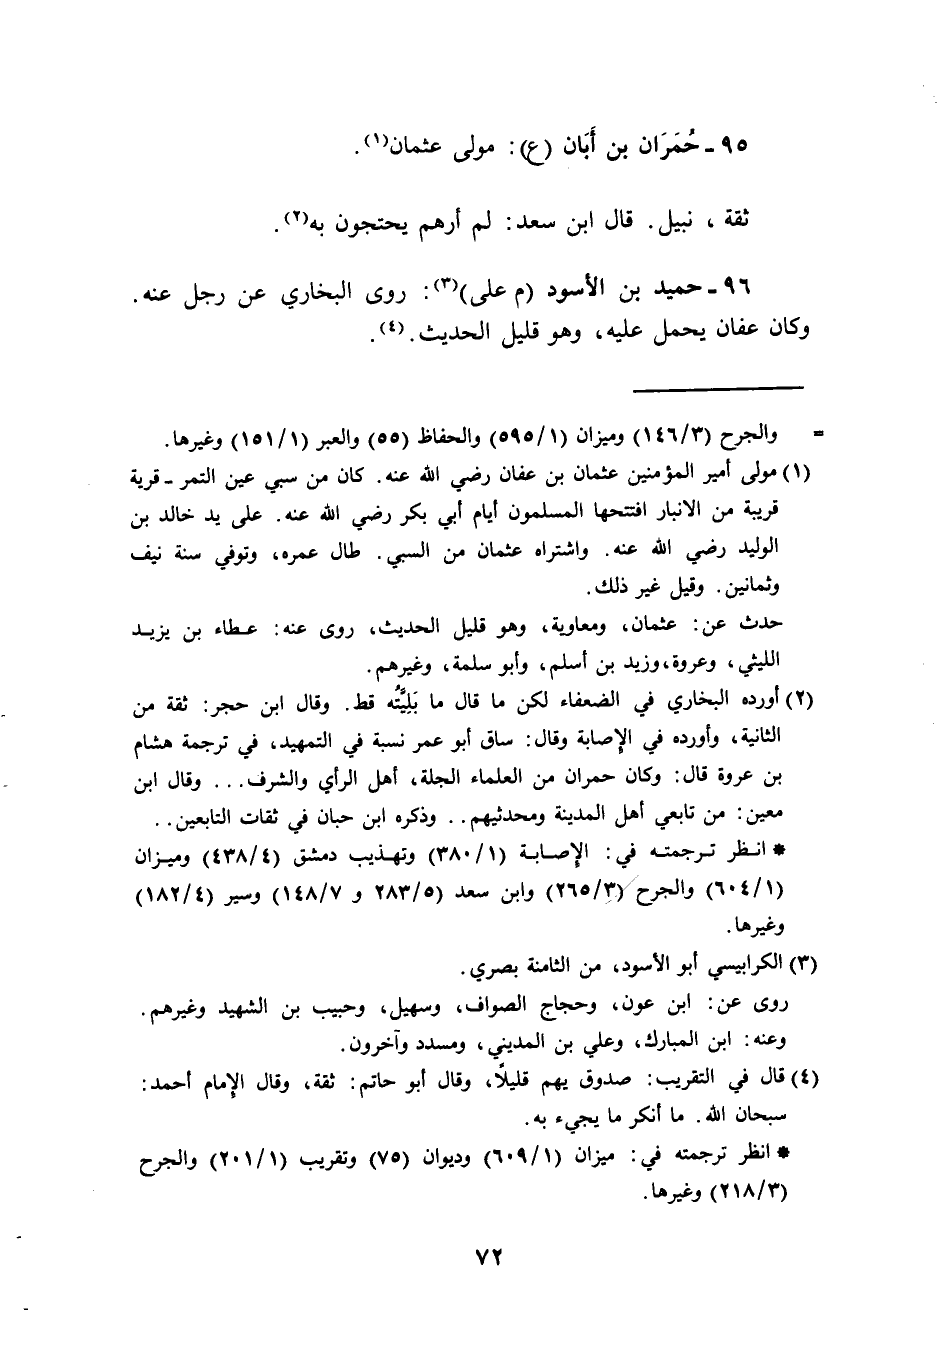 ٩٥ ـ حُمَرَان بن أَبَان (ع): مولى عثمان(١).
ثقة ، نبيل. قال ابن سعد: لم أرهم يحتجون به(٢).
٩٦ ـ حميد بن الأسود (م على)(٣): روى البخاري عن رجل عنه.
وكان عفان يحمل عليه، وهو قليل الحديث.(٤).
= والجرح (١٤٦/٣) وميزان (٥٩٥/١) والحفاظ (٥٥) والعبر (١٥١/١) وغيرها.
(١) مولى أمير المؤمنين عثمان بن عفان رضي الله عنه. كان من سبي عين التمر ـ قرية
قريبة من الانبار افتتحها المسلمون أيام أبي بكر رضي الله عنه. على يد خالد بن
الوليد رضي الله عنه. واشتراه عثمان من السبي. طال عمره، وتوفي سنة نيف
وثمانين. وقيل غير ذلك.
حدث عن: عثمان، ومعاوية، وهو قليل الحديث، روى عنه: عطاء بن يزيد
الليثي، وعروة،وزيد بن أسلم، وأبو سلمة، وغيرهم.
(٢) أورده البخاري في الضعفاء لكن ما قال ما بَلِيَّتُه قط. وقال ابن حجر: ثقة من
الثانية، وأورده في الإصابة وقال: ساق أبو عمر نسبة في التمهيد، في ترجمة هشام
بن عروة قال: وكان حمران من العلماء الجلة، أهل الرأي والشرف... وقال ابن
معين: من تابعي أهل المدينة ومحدثيهم.. وذكره ابن حبان في ثقات التابعين..
* انظر ترجمته في: الإصابة (٣٨٠/١) وتهذيب دمشق (٤٣٨/٤) وميزان
(٦٠٤/١) والجرح (٢٦٥/٣) وابن سعد (٢٨٣/٥ و ١٤٨/٧) وسير (١٨٢/٤)
وغيرها.
(٣) الكرابيسي أبو الأسود، من الثامنة بصري.
روى عن: ابن عون، وحجاج الصواف، وسهيل، وحبيب بن الشهيد وغيرهم.
وعنه: ابن المبارك، وعلي بن المديني، ومسدد وآخرون.
(٤) قال في التقريب: صدوق يهم قليلاً، وقال أبو حاتم: ثقة، وقال الإمام أحمد:
سبحان الله. ما أنكر ما يجيء به.
* انظر ترجمته في: ميزان (٦٠٩/١) وديوان (٧٥) وتقريب (٢٠١/١) والجرح
(٢١٨/٣) وغيرها.
٧٢